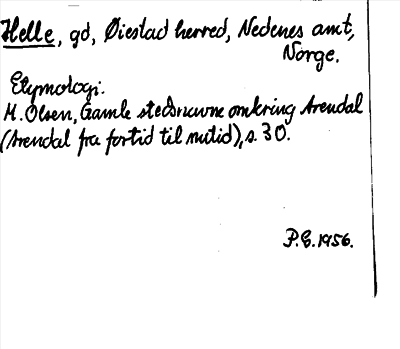 Helle, gd, Øiestad herred, Nedenes amt,
Norge.
Etymologi.
M. Olsen, Gamle stedsnavne omkring Arendal
(Arendal fra fortid til nutid), s. 30.
P.G. 1956.